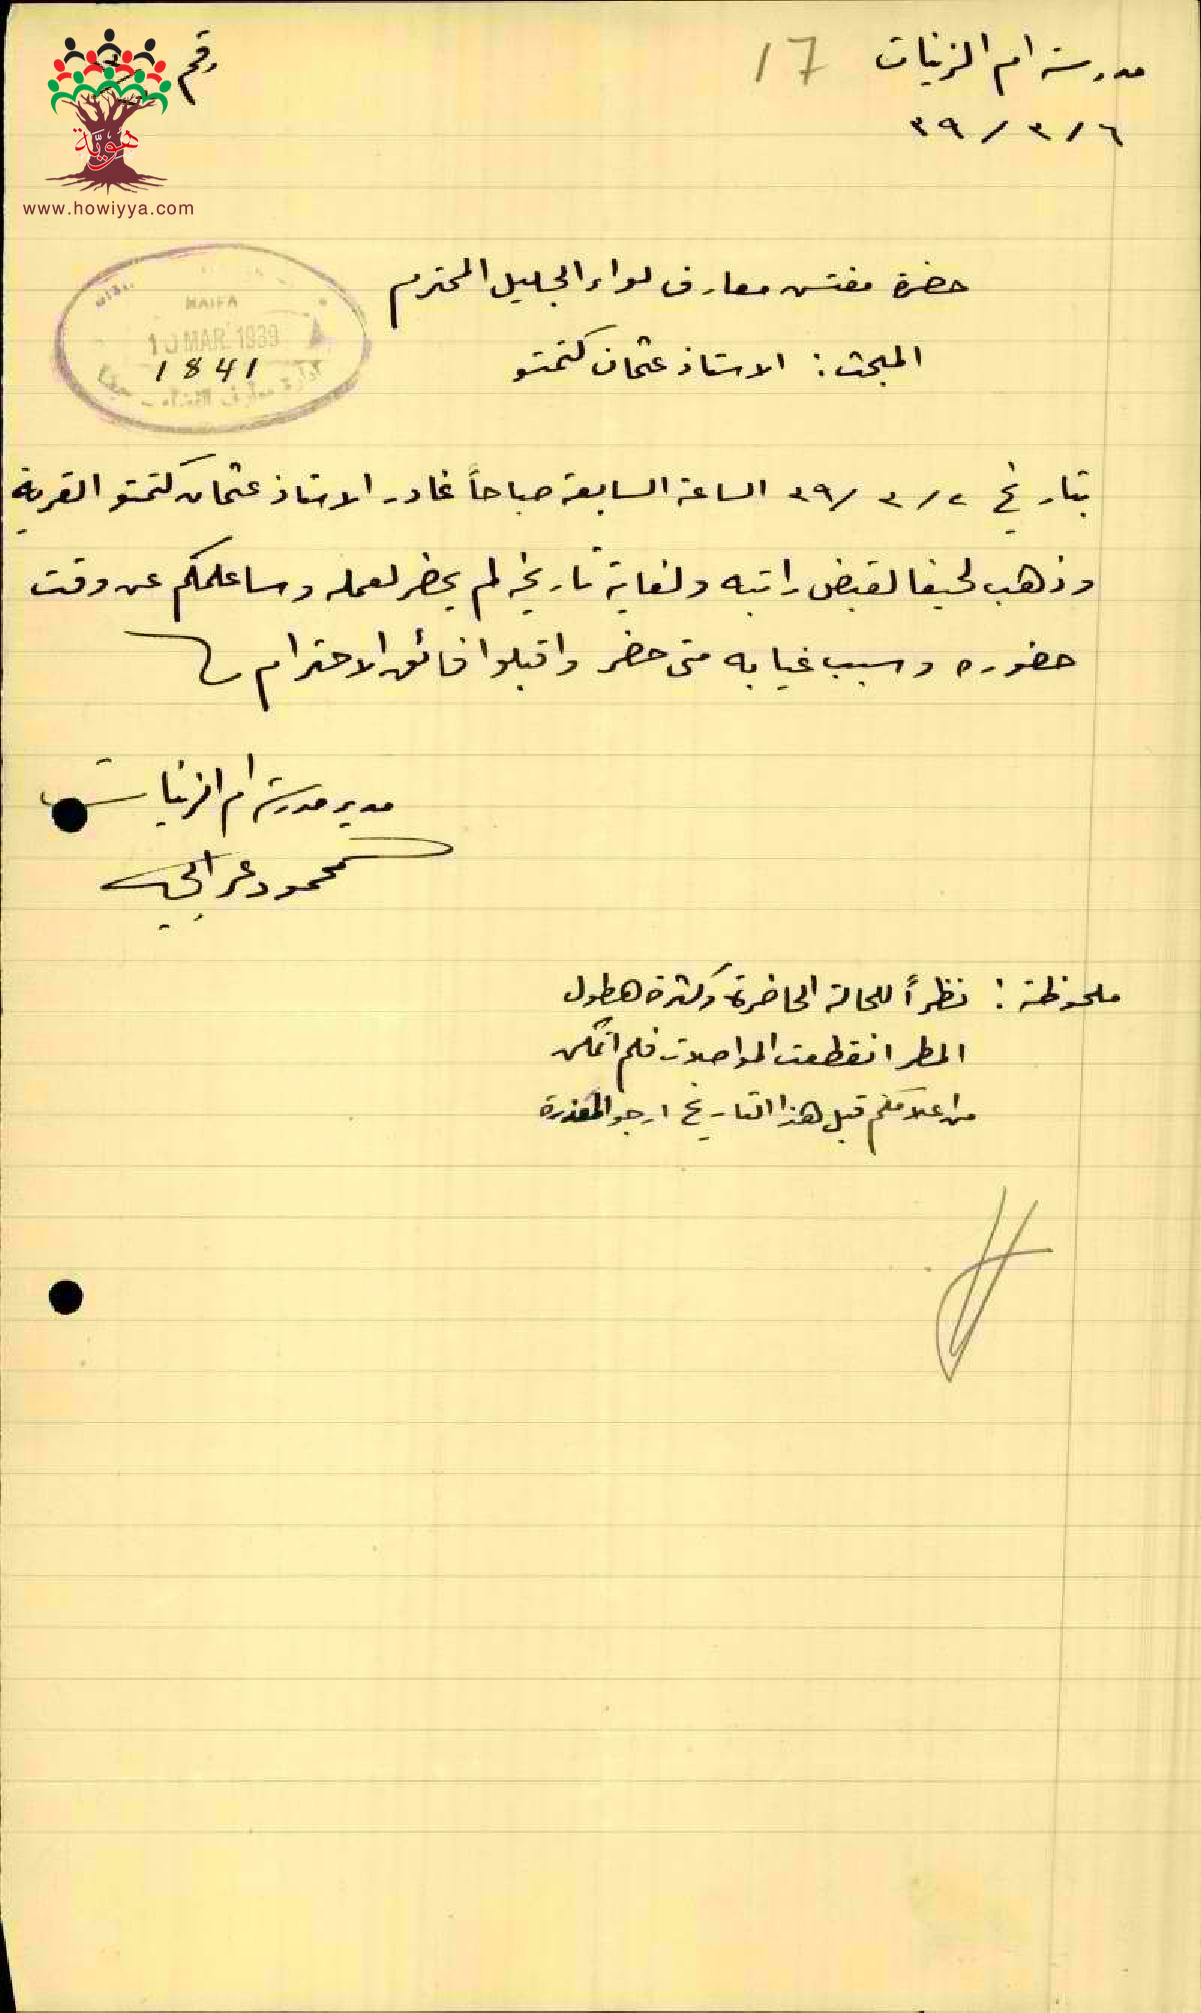 مدرسة ام الزينات 17
رقم
٦ / ٣ / ٣٩
هوية
www.howiyya.com
حضرة مفتش معارف لواء الجليل المحترم
HAIFA
10 MAR 1939
1841
ادارة معارف اللواء حيفا
المبحث : الاستاذ عثمان كتمتو
بتاريخ ٢ / ٣ / ٣٩ الساعة السابعة صباحاً غادر الاستاذ عثمان كتمتو القرية
وذهب لحيفا لقبض راتبه ولغاية تاريخه لم يحضر لعمله وساعلمكم عن وقت
حضوره وسبب غيابه متى حضر واقبلوا فائق الاحترام
مدير مدرسة ام الزينات
محمود عرابي
ملحوظة : نظراً للحالة الحاضرة وكثرة هطول
المطر انقطعت المواصلات فلم اتمكن
من اعلامكم قبل هذا التاريخ ارجو المعذرة